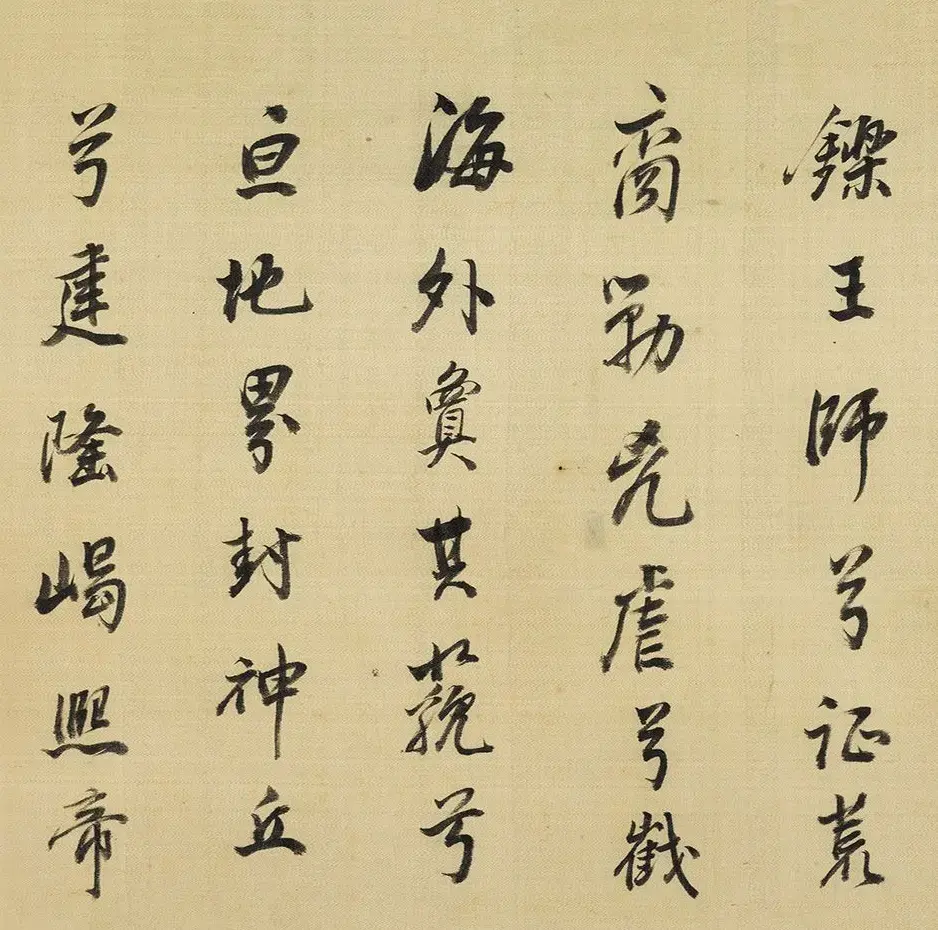 鑠王師兮征荒
裔勦兇虐兮截
海外夐其藐兮
亘地界封神丘
兮建隆嵑熙帝